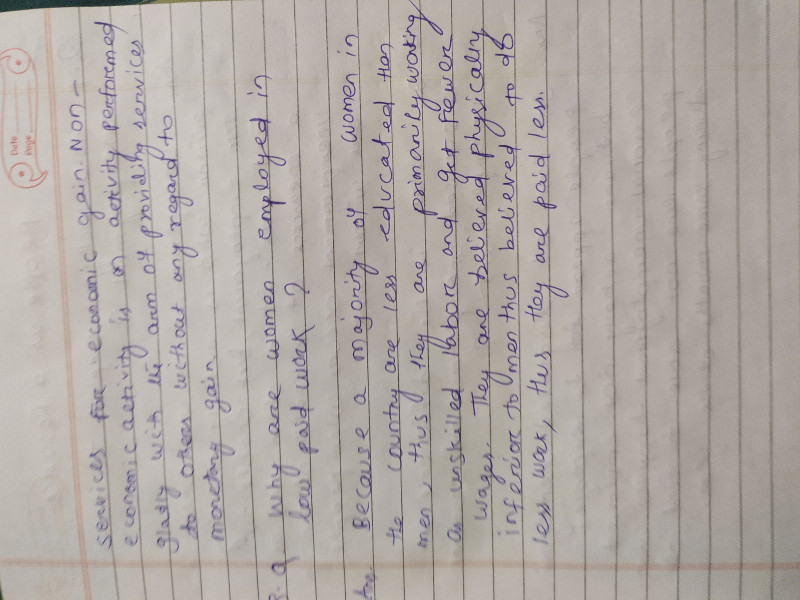 Date
Page
services for economic gain. Non-
economic activity is an activity performed
gladly with the aim of providing services
to others without any regard to
monetary gain
Q Why are women employed in
low paid work ?
Because a majority of women in
the country are less educated than
men, thus they are primarily working
as unskilled labore and get fewer
wages. They are believed physically
inferior to men thus believed to do
less work, thus they are paid less.